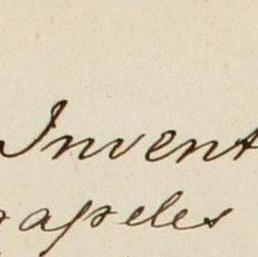 Invent
papeles